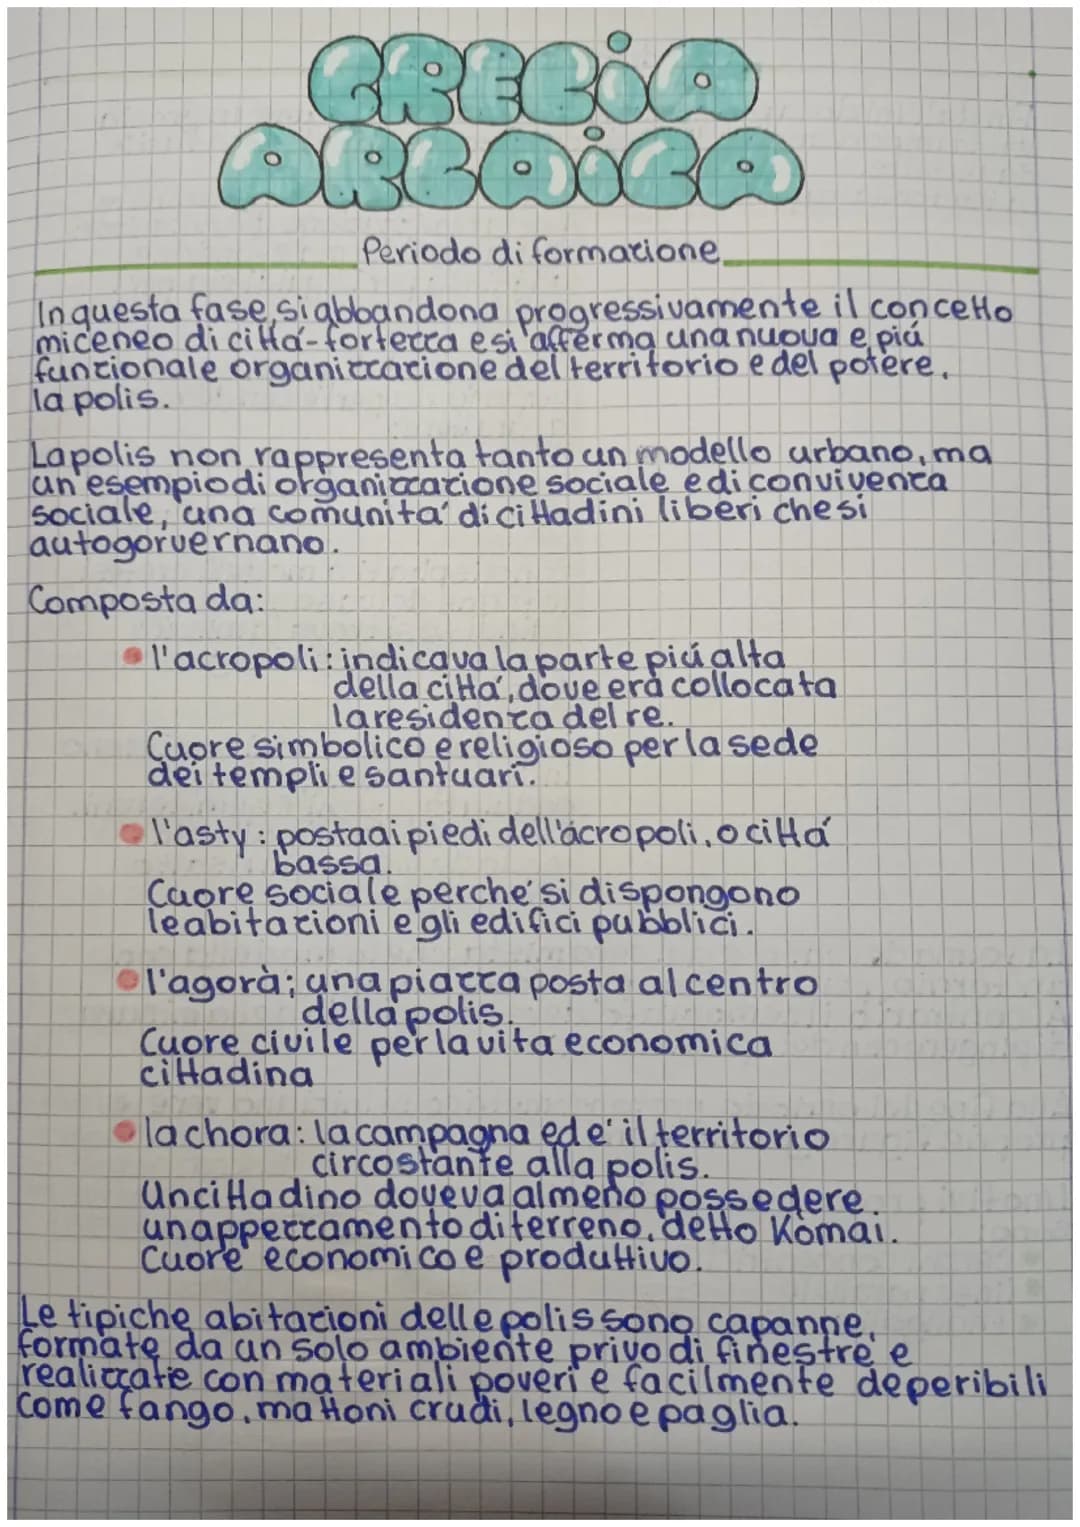 GRECiA
ARCAiCA
Periodo di formazione
In questa fase, si abbandona progressivamente il concetto
miceneo di cittá-fortezza e si afferma una nuova e piú
funzionale organizzazione del territorio e del potere,
la polis.
La polis non rappresenta tanto un modello urbano, ma
un'esempio di organizzazione sociale e di convivenza
sociale, una comunita' di cittadini liberi che si
autogorvernano.
Composta da:
l'acropoli: indicava la parte piú alta
della citta', dove era collocata
la residenza del re.
Cuore simbolico e religioso per la sede
dei templi e santuari.
l'asty: posta ai piedi dell'acropoli, o cittá
bassa.
Cuore sociale perche' si dispongono
le abitazioni e gli edifici pubblici.
l'agorà; una piazza posta al centro
della polis.
Cuore civile per la vita economica
cittadina
la chora: la campagna ed e' il territorio
circostante alla polis.
Un cittadino doveva almeno possedere
un appezzamento di terreno, detto Komai.
Cuore economico e produttivo.
Le tipiche abitazioni delle polis sono capanne,
formate da un solo ambiente privo di finestre e
realizzate con materiali poveri e facilmente deperibili
come fango, mattoni crudi, legno e paglia.